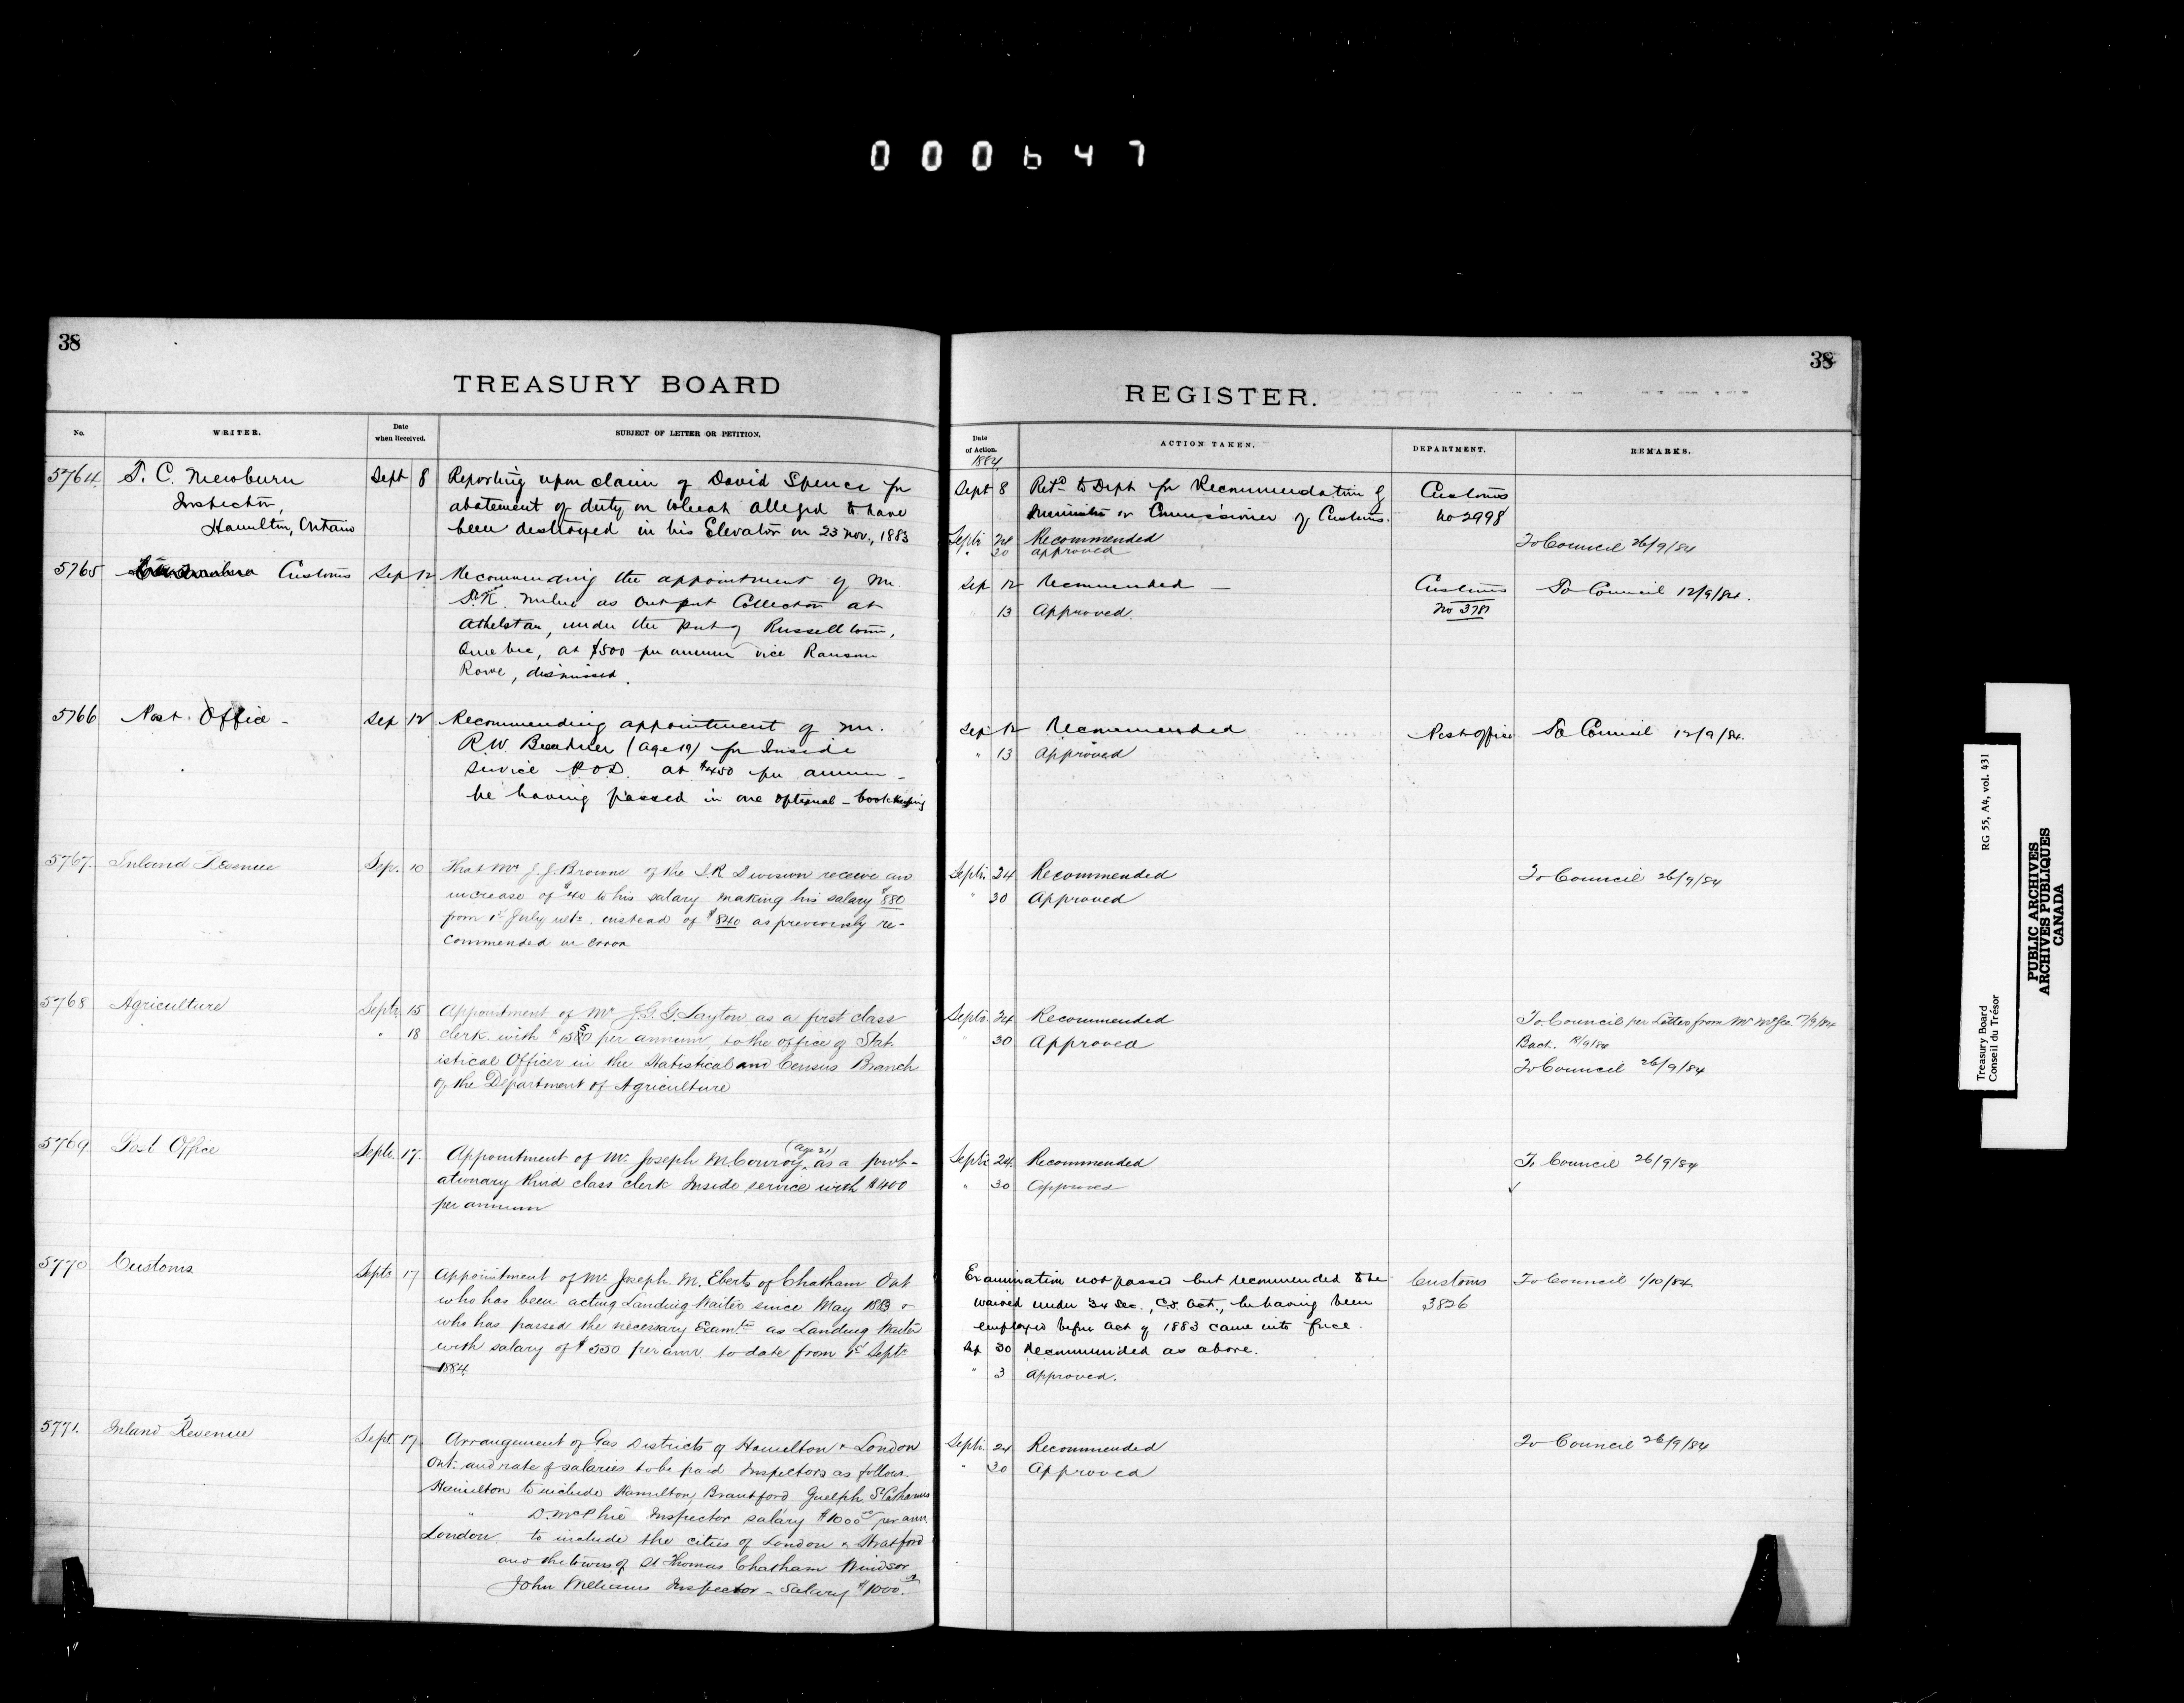 000647
38
TREASURY BOARD
No.
WRITER.
Date
when Received.
SUBJECT OF LETTER OR PETITION.
5764.
T. C. Mewburn
Inspector,
Hamilton, Ontario
Sept 8
Reporting upon claim of David Spence for
abatement of duty on Wheat alleged to have
been destroyed in his Elevator on 23 Nov., 1883
5765
Customs
Sep 12
Recommending the appointment of Mr.
Milne as Outport Collector at
Athelstan, under the Port of Russelltown,
Quebec, at $500 per annum vice Ransom
Rowe, dismissed.
5766
Post Office -
Sep 12
Recommending appointment of Mr.
R.W. (age 19) for Inside
Service P.O.D. at $450 per annum -
he having passed in one optional - bookkeeping
5767.
Inland Revenue
Sep. 10
That Mr J. J. Browne of the I.R Division receive an
increase of $40 to his salary making his salary $880
from 1st July ulto. instead of $840 as previously re-
commended in error
5768
Agriculture
Septr 15
" 18
Appointment of Mr J. G. G. Layton as a first class
clerk with $ per annum, to the office of Stat-
istical Officer in the Statistical and Census Branch
of the Department of Agriculture
5769
Post Office
Septr. 17.
(age 21)
Appointment of Mr Joseph M. Conroy, as a prob-
ationary third class clerk Inside service with $400
per annum
5770
Customs
Septr 17
Appointment of Mr Joseph. M. Eberts of Chatham Ont
who has been acting Landing Waiter since May 1883 &
who has passed the necessary Examtn as Landing Waiter
with salary of $ 550 per ann. to date from 1st Septr
1884.
5771.
Inland Revenue
Sept 17.
Arrangement of Gas Districts of Hamilton & London
Ont. and rate of salaries to be paid Inspectors as follows.
Hamilton to include Hamilton, Brantford Guelph St Catharines
" D. McPhie Inspector salary $1000.00 per ann.
London. to include the cities of London & Stratford
and the towns of St Thomas Chatham Windsor
John Williams Inspector - Salary $1000.
38
REGISTER.
Date
of Action.
ACTION TAKEN.
DEPARTMENT.
REMARKS.
1884
Sept 8
Retd to Dept for Recommendation of
Minister or Commissioner of Customs.
Customs
No 2998
Septr 24 Recommended
" 30 approved
To Council 26/9/84
Sep 12 Recommended -
13 Approved.
Customs
No 3781
To Council 12/9/84.
Sep 12 Recommended
" 13 Approved
Post office
To Council 12/9/84.
Septr. 24 Recommended
" 30 Approved
To Council 26/9/84
Septr. 24 Recommended
" 30 Approved
To Council per Letter from Mr McGee
Back. 18/9/84
To Council 26/9/84
Septr 24. Recommended
" 30 Approved
To Council 26/9/84
Examination not passed but recommended to be
waived under 34 Sec., C.S. Act., he having been
employed before Act of 1883 came into force.
Sep 30 Recommended as above.
" 3 Approved.
Customs
3826
To Council 1/10/84
Septr. 24 Recommended
" 30 Approved
To Council 26/9/84
Treasury Board
Conseil du Trésor
RG 55, A4, vol. 431
PUBLIC ARCHIVES
ARCHIVES PUBLIQUES
CANADA